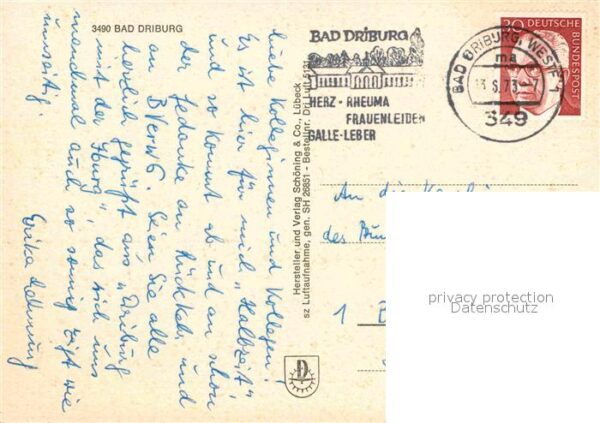 3490 BAD DRIBURG
Liebe Kolleginnen und Kollegen!
Es ist hier für mich „Halbzeit"
und so kommt ab und an schon
der Gedanke an Rückkehr und
an BVerwG. Seien Sie alle
herzlich gegrüßt aus „Driburg
mit der Iburg", das sich uns
manchmal auch so sonnig zeigt wie
umseitig
Erika
Hersteller und Verlag Schöning & Co., Lübeck
sz Luftaufnahme, gen. SH 26851 - Bestellnr. Dri
BAD DRIBURG
HERZ - RHEUMA
FRAUENLEIDEN
GALLE-LEBER
BAD DRIBURG, WESTF 1
ma
349
DEUTSCHE BUNDESPOST
An die
des
1
privacy protection
Datenschutz